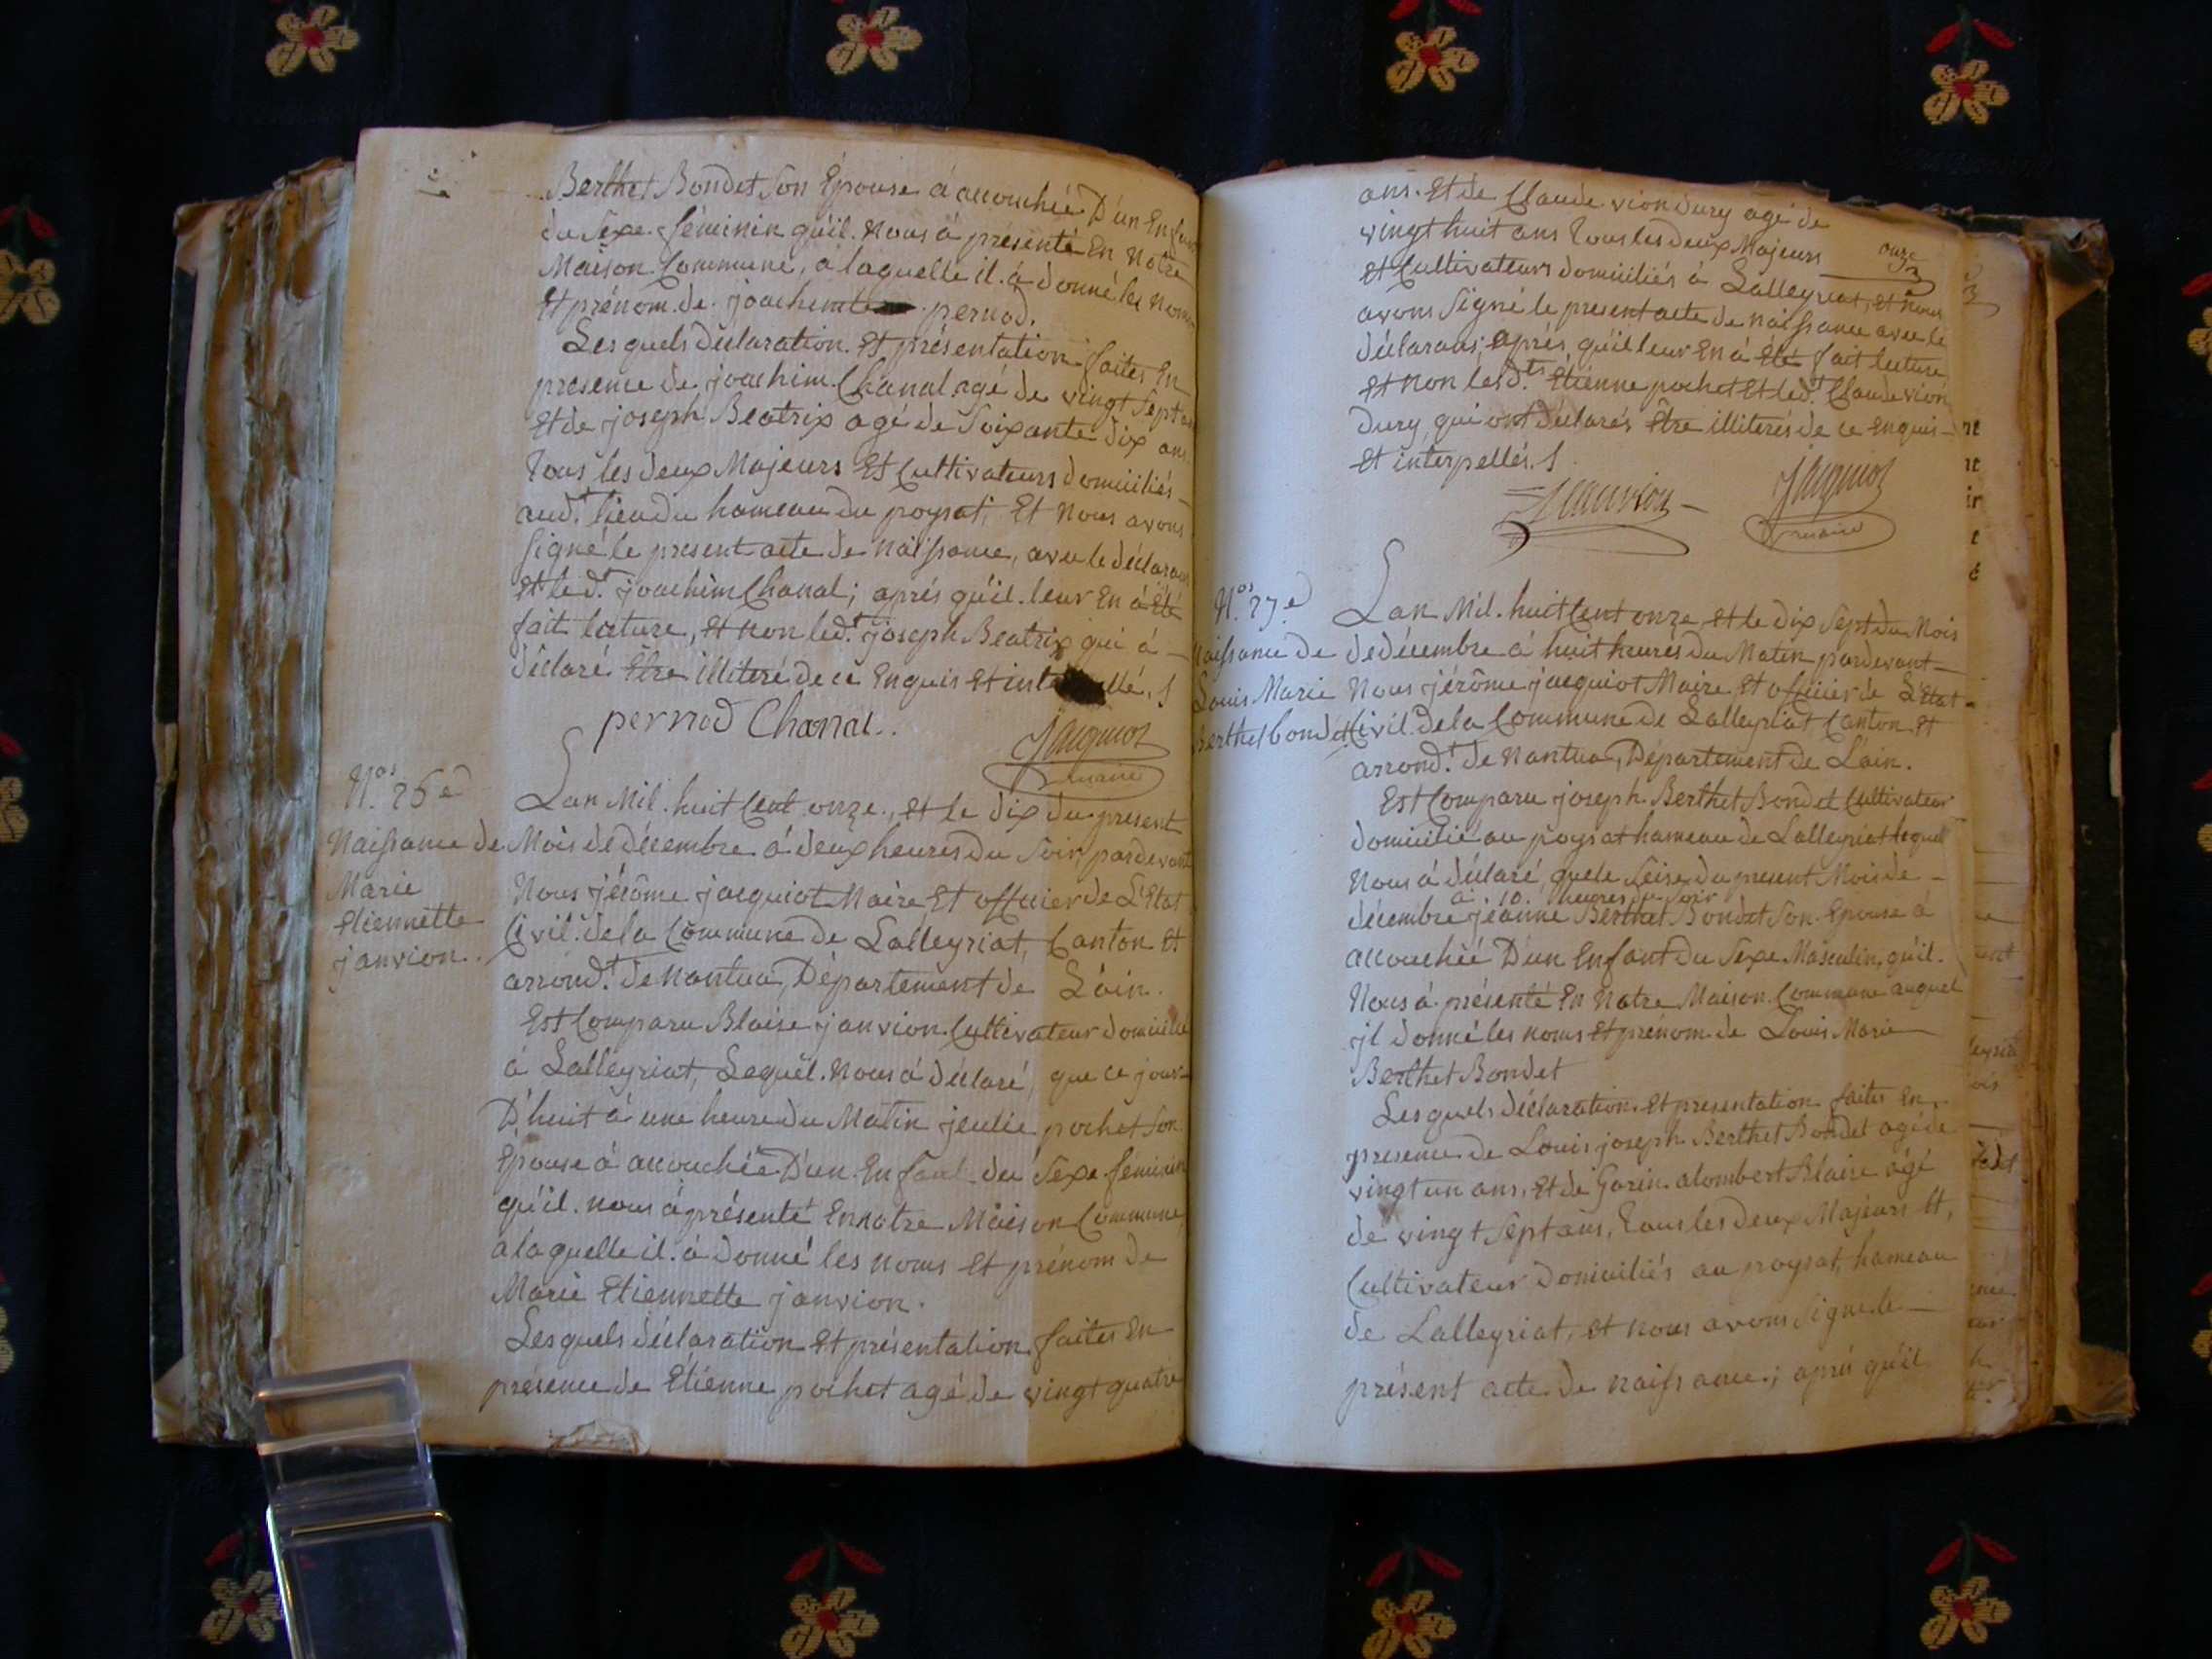 Berthet Bondet Son Épouse á accouchéé D'un Enfant
du Sexe féminin qúil. Nous á présenté En Notre
Maison Commune, a laquelle il. á donné les Noms
Et prénom. de. joachim pernod.
Lesquels déclaration. Et présentation faites En
presence de joachim Chanal agé de vingt Sept ans
Et de joseph Beatrix agé de Soixante dix ans.
Tous les deux Majeurs Et Cultivateurs domiciliés
aud.t lieu du hameau du poysat, Et Nous avons
Signé le present acte de Naissance, avec le déclarant
et led.t joachim Chanal; aprés qúil. leur En á Eté
fait lecture, Et Non led.t joseph Beatrix qui á
déclaré Etre illiteré de ce Enquis Et
pernod Chanal..
Jacquiot
maire
N.os 26e
Naissance de
Marie
Etiennette
janvion.
Lan Mil. huit Cent onze., et le dix du present
Mois de décembre á deux heures du Soir pardevant
Nous jérôme jacquiot Maire Et officier de L'Etat
Civil. de la Commune de Lalleyriat, Canton Et
arrond.t de Nantua, Département de L'ain.
Est Comparu Blaise janvion Cultivateur domicilié
á Lalleyriat, Lequel. Nous á déclaré, que ce jour
D'huit á une heure du Matin jeulie pochet Son
Epouse á accouchéé D'un Enfant du Sexe féminin
qúil. nous á présenté En notre Maison Commune,
a laquelle il. á donné les noms et prénom de
Marie Etiennette janvion.
Lesquels déclaration Et présentation faites En
présence de Etienne pochet agé de vingt quatre
ans. Et de Claude vion dury agé de
vingt huit ans Tous les deux Majeurs
onze
Et Cultivateurs domiciliés á Lalleyriat, et Nous
avons Signé le present acte de Naissance avec le
déclarans; aprés qúil leur En á Eté fait lecture
et Non lesd.ts Etienne pochet Et led.t Claude vion
Dury, qui ont déclarés Etre illiterés de ce Enquis
Et interpellés.
Jacquiot
maire
N.os 27e
Naissance de
Louis Marie
Berthet bondet
Lan Mil. huit Cent onze, et le dix Sept du Mois
de décembre á huit heures du Matin pardevant
Nous jérôme jacquiot Maire Et officier de L'Etat
Civil. de la Commune de Lalleyriat, Canton Et
arrond.t de Nantua, Département de L'ain.
Est Comparu joseph Berthet Bondet Cultivateur
domicilié au poysat hameau de Lalleyriat lequel
Nous á déclaré, que le Seise du present Mois de
á . 10. heures du Soir
décembre jeanne Berthet Bondet Son Epouse á
accouchéé D'un Enfant du Sexe Masculin, qúil.
Nous á présenté En Notre Maison Commune auquel
jl donné les noms et prénom de Louis Marie
Berthet Bondet
Lesquels déclaration Et presentation faites En
presence de Louis joseph Berthet Bondet agé de
vingt un ans, Et de Gorin. alombert Blaise agé
de vingt Sept ans, Tous les deux Majeurs Et,
Cultivateur domiciliés au poysat, hameau
de Lalleyriat, Et nous avons Signe le
présent acte de naissance; aprés qúil